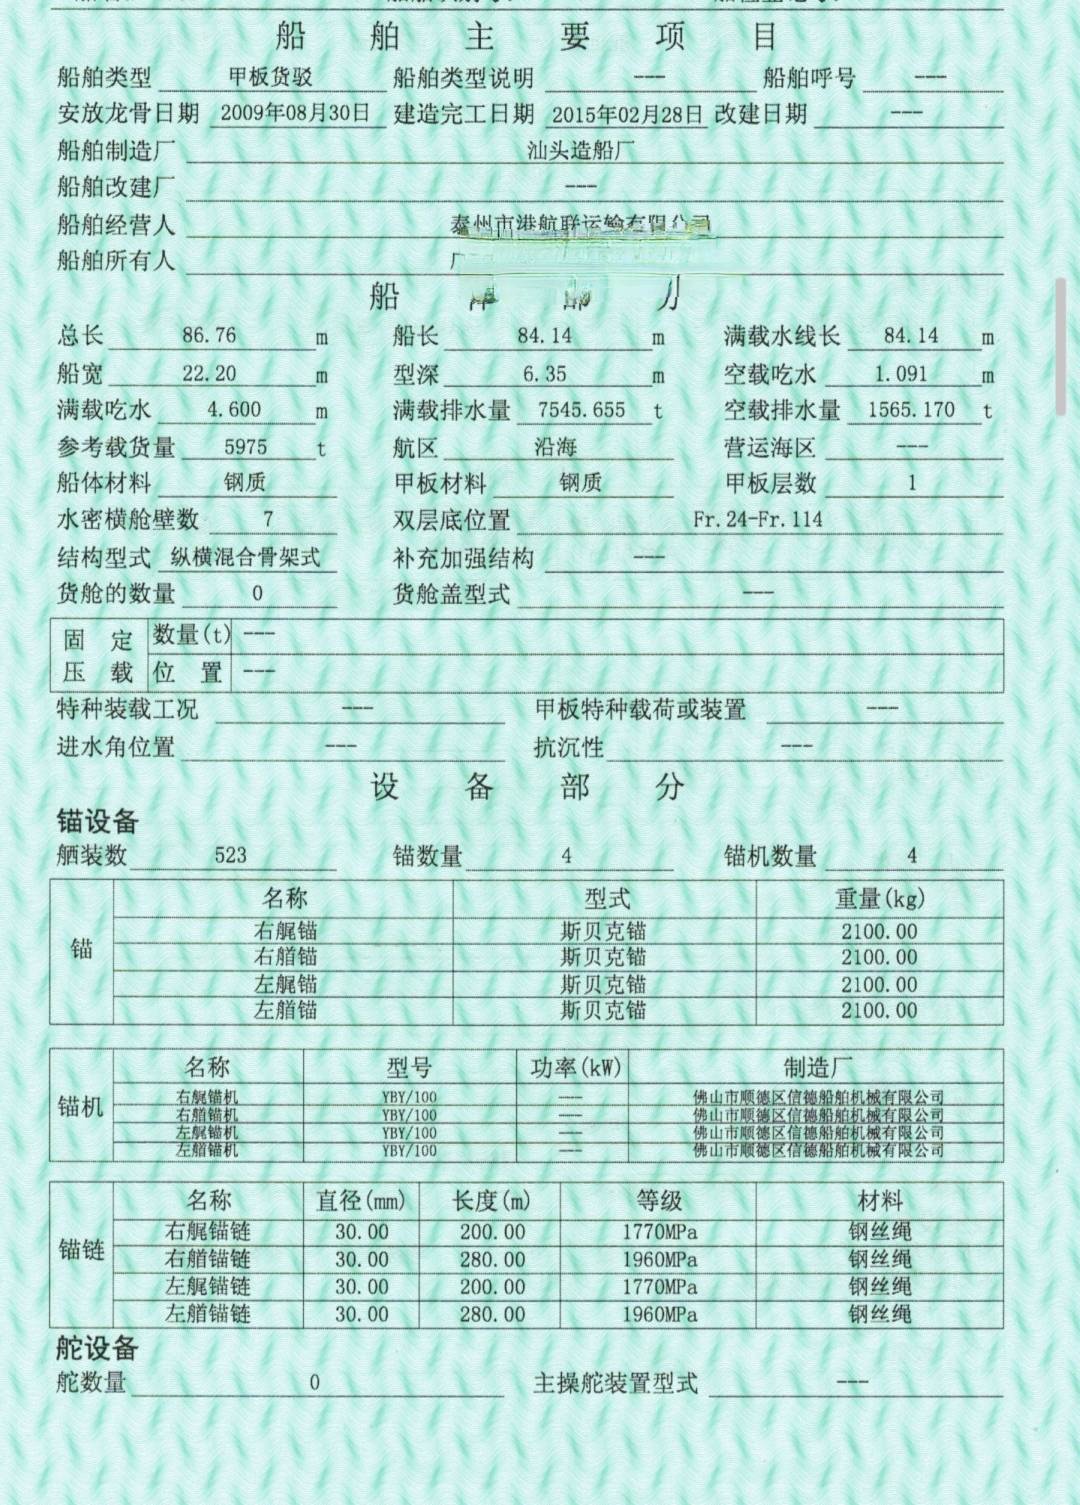 船 舶 主 要 项 目
船舶类型 甲板货驳 船舶类型说明 --- 船舶呼号 ---
安放龙骨日期 2009年08月30日 建造完工日期 2015年02月28日 改建日期 ---
船舶制造厂 汕头造船厂
船舶改建厂 ---
船舶经营人 泰州市港航联运输有限公司
船舶所有人
船 体 部 分
总长 86.76 m 船长 84.14 m 满载水线长 84.14 m
船宽 22.20 m 型深 6.35 m 空载吃水 1.091 m
满载吃水 4.600 m 满载排水量 7545.655 t 空载排水量 1565.170 t
参考载货量 5975 t 航区 沿海 营运海区 ---
船体材料 钢质 甲板材料 钢质 甲板层数 1
水密横舱壁数 7 双层底位置 Fr.24-Fr.114
结构型式 纵横混合骨架式 补充加强结构 ---
货舱的数量 0 货舱盖型式 ---
固 定 数量(t) ---
压 载 位 置 ---
特种装载工况 --- 甲板特种载荷或装置 ---
进水角位置 --- 抗沉性 ---
设 备 部 分
锚设备
舾装数 523 锚数量 4 锚机数量 4
锚 名称 型式 重量(kg)
右艉锚 斯贝克锚 2100.00
右艏锚 斯贝克锚 2100.00
左艉锚 斯贝克锚 2100.00
左艏锚 斯贝克锚 2100.00
锚机 名称 型号 功率(kW) 制造厂
右艉锚机 YBY/100 --- 佛山市顺德区信德船舶机械有限公司
右艏锚机 YBY/100 --- 佛山市顺德区信德船舶机械有限公司
左艉锚机 YBY/100 --- 佛山市顺德区信德船舶机械有限公司
左艏锚机 YBY/100 --- 佛山市顺德区信德船舶机械有限公司
锚链 名称 直径(mm) 长度(m) 等级 材料
右艉锚链 30.00 200.00 1770MPa 钢丝绳
右艏锚链 30.00 280.00 1960MPa 钢丝绳
左艉锚链 30.00 200.00 1770MPa 钢丝绳
左艏锚链 30.00 280.00 1960MPa 钢丝绳
舵设备
舵数量 0 主操舵装置型式 ---